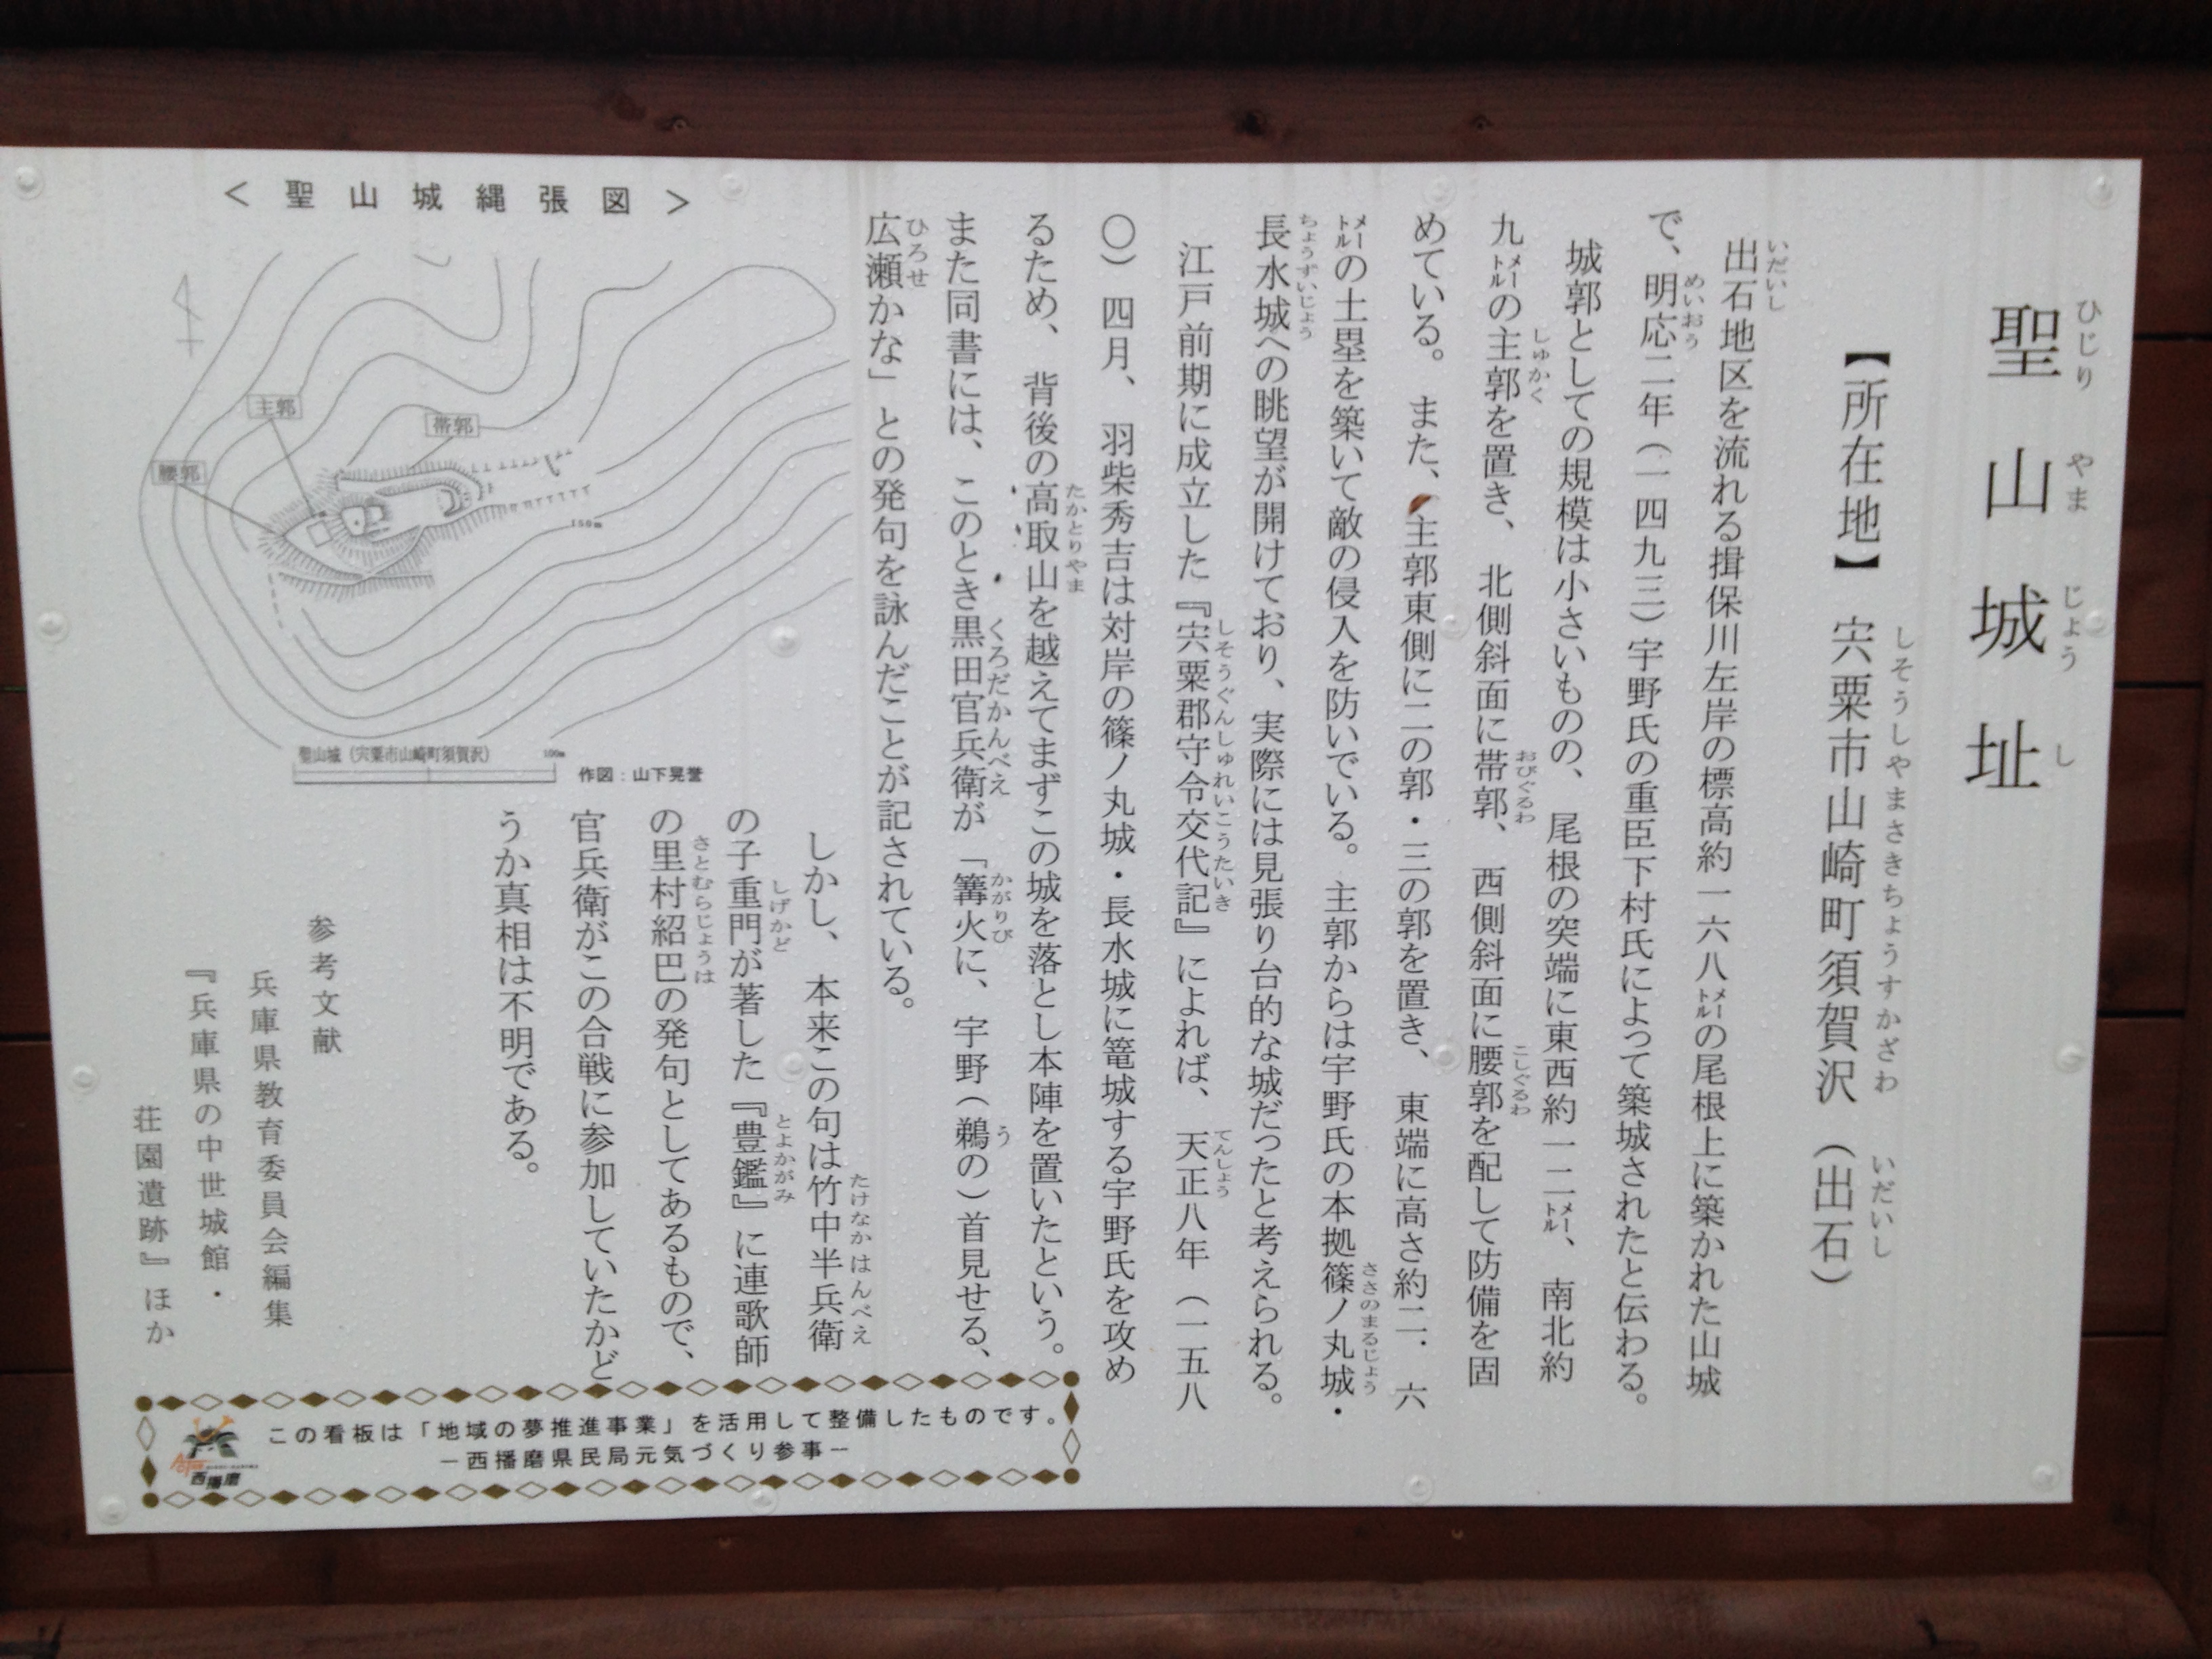 聖山城址
ひじりやまじょうし
【所在地】 宍粟市山崎町須賀沢（出石）
しそうしやまさきちょうすかざわ いだいし
出石地区を流れる揖保川左岸の標高約一六八㍍の尾根上に築かれた山城
いだいし
で、明応二年（一四九三）宇野氏の重臣下村氏によって築城されたと伝わる。
めいおう
城郭としての規模は小さいものの、尾根の突端に東西約一二㍍、南北約
九㍍の主郭を置き、北側斜面に帯郭、西側斜面に腰郭を配して防備を固
しゅかく おびぐるわ こしぐるわ
めている。また、主郭東側に二の郭・三の郭を置き、東端に高さ約二．六
㍍の土塁を築いて敵の侵入を防いでいる。主郭からは宇野氏の本拠篠ノ丸城・
ささのまるじょう
長水城への眺望が開けており、実際には見張り台的な城だったと考えられる。
ちょうずいじょう
江戸前期に成立した『宍粟郡守令交代記』によれば、天正八年（一五八
しそうぐんしゅれいこうたいき てんしょう
〇）四月、羽柴秀吉は対岸の篠ノ丸城・長水城に篭城する宇野氏を攻め
るため、背後の高取山を越えてまずこの城を落とし本陣を置いたという。
たかとりやま
また同書には、このとき黒田官兵衛が「篝火に、宇野（鵜の）首見せる、
くろだかんべえ かがりび う
広瀬かな」との発句を詠んだことが記されている。
ひろせ
しかし、本来この句は竹中半兵衛
たけなかはんべえ
の子重門が著した『豊鑑』に連歌師
しげかど とよかがみ
の里村紹巴の発句としてあるもので、
さとむらじょうは
官兵衛がこの合戦に参加していたかど
うか真相は不明である。
＜聖山城縄張図＞
主郭
帯郭
腰郭
150m
聖山城（宍粟市山崎町須賀沢）
100m
作図：山下晃誉
参考文献
兵庫県教育委員会編集
『兵庫県の中世城館・
荘園遺跡』ほか
この看板は「地域の夢推進事業」を活用して整備したものです。
－西播磨県民局元気づくり参事－
西播磨